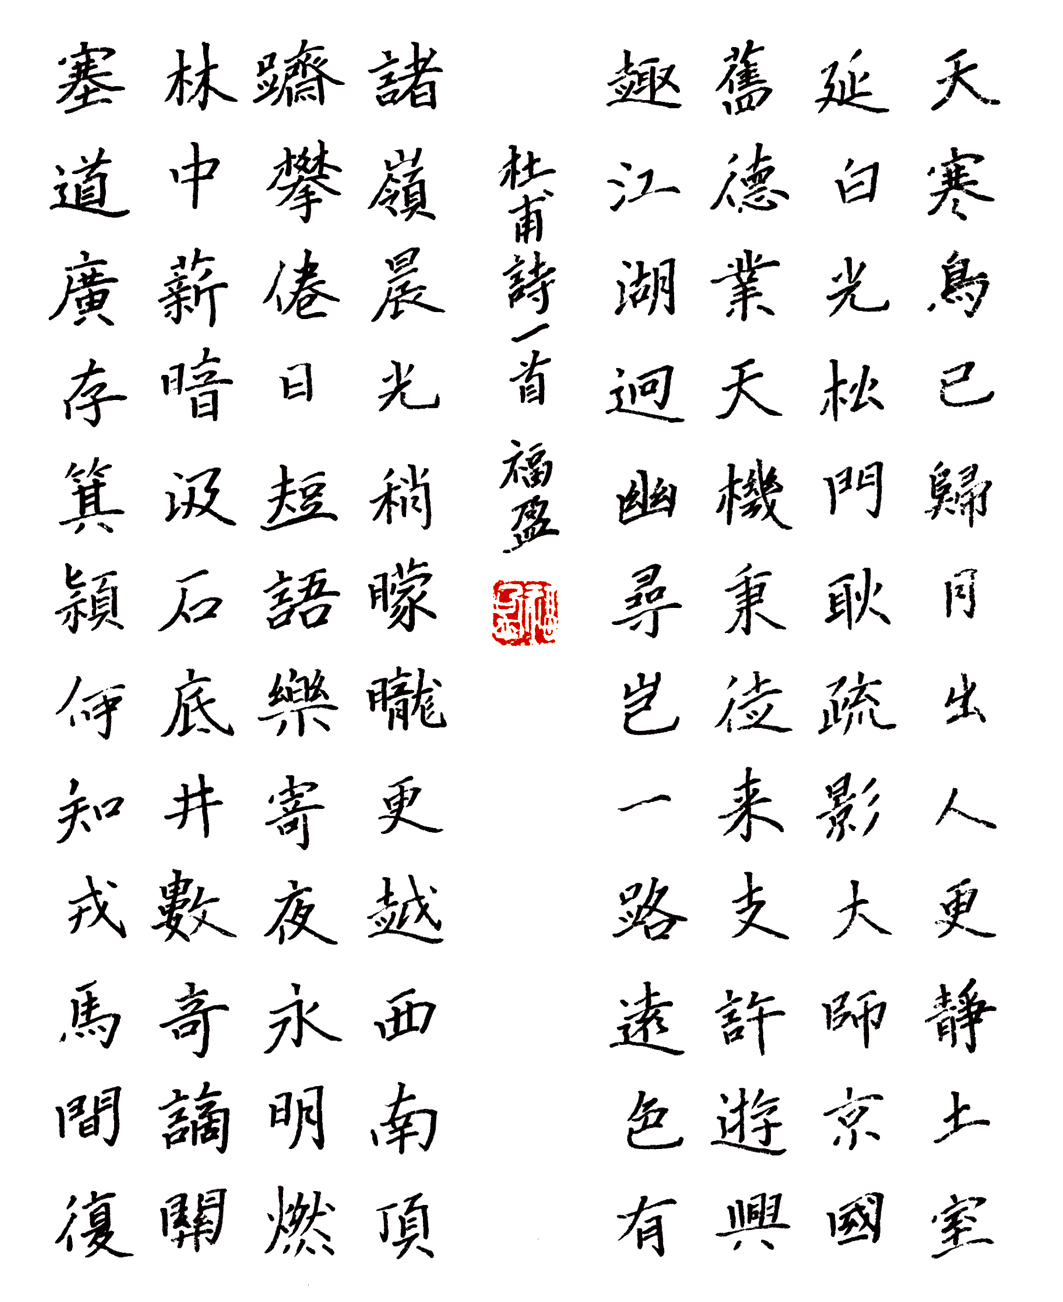 天寒鳥已歸月出人更靜土室
延白光松門耿疏影大師京國
舊德業天機秉從来支許遊興
趣江湖迥幽尋豈一路遠色有
杜甫詩一首 福盈
諸嶺晨光稍曚曨更越西南頂
躋攀倦日短語樂寄夜永明燃
林中薪暗汲石底井數奇謫關
塞道廣存箕潁何知戎馬間復